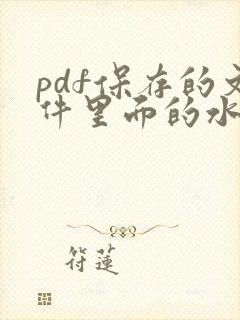 pdf保存的文
件里而的水
符蓮